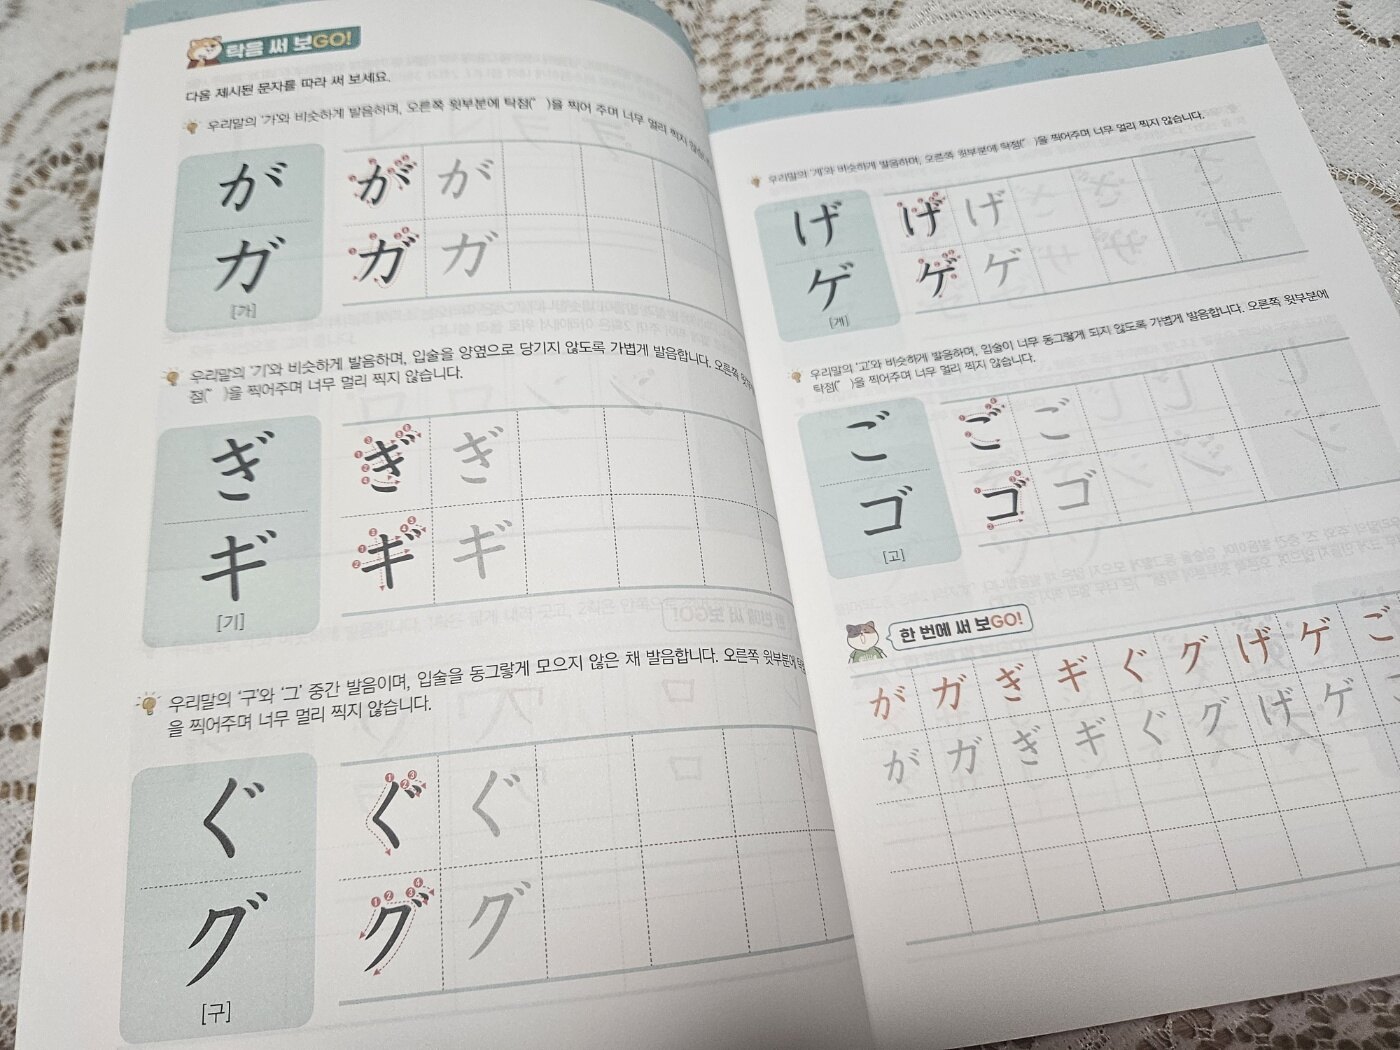 탁음 써 보GO!
다음 제시된 문자를 따라 써 보세요.
우리말의 '가'와 비슷하게 발음하며, 오른쪽 윗부분에 탁점(゛)을 찍어 주며 너무 멀리 찍지
が が が
ガ ガ ガ
[가]
우리말의 '기'와 비슷하게 발음하며, 입술을 양옆으로 당기지 않도록 가볍게 발음합니다. 오른쪽
점(゛)을 찍어주며 너무 멀리 찍지 않습니다.
ぎ ぎ ぎ
ギ ギ ギ
[기]
우리말의 '구'와 '그' 중간 발음이며, 입술을 동그랗게 모으지 않은 채 발음합니다. 오른쪽 윗부분에
을 찍어주며 너무 멀리 찍지 않습니다.
ぐ ぐ ぐ
グ グ グ
[구]
우리말의 '게'와 비슷하게 발음하며, 오른쪽 윗부분에 탁점(゛)을 찍어주며 너무 멀리 찍지 않습니다.
げ げ げ
ゲ ゲ ゲ
[게]
우리말의 '고'와 비슷하게 발음하며, 입술이 너무 동그랗게 되지 않도록 가볍게 발음합니다. 오른쪽 윗부분에
탁점(゛)을 찍어주며 너무 멀리 찍지 않습니다.
ご ご ご
ゴ ゴ ゴ
[고]
한 번에 써 보GO!
が ガ ぎ ギ ぐ グ げ ゲ ご
が ガ ぎ ギ ぐ グ げ ゲ